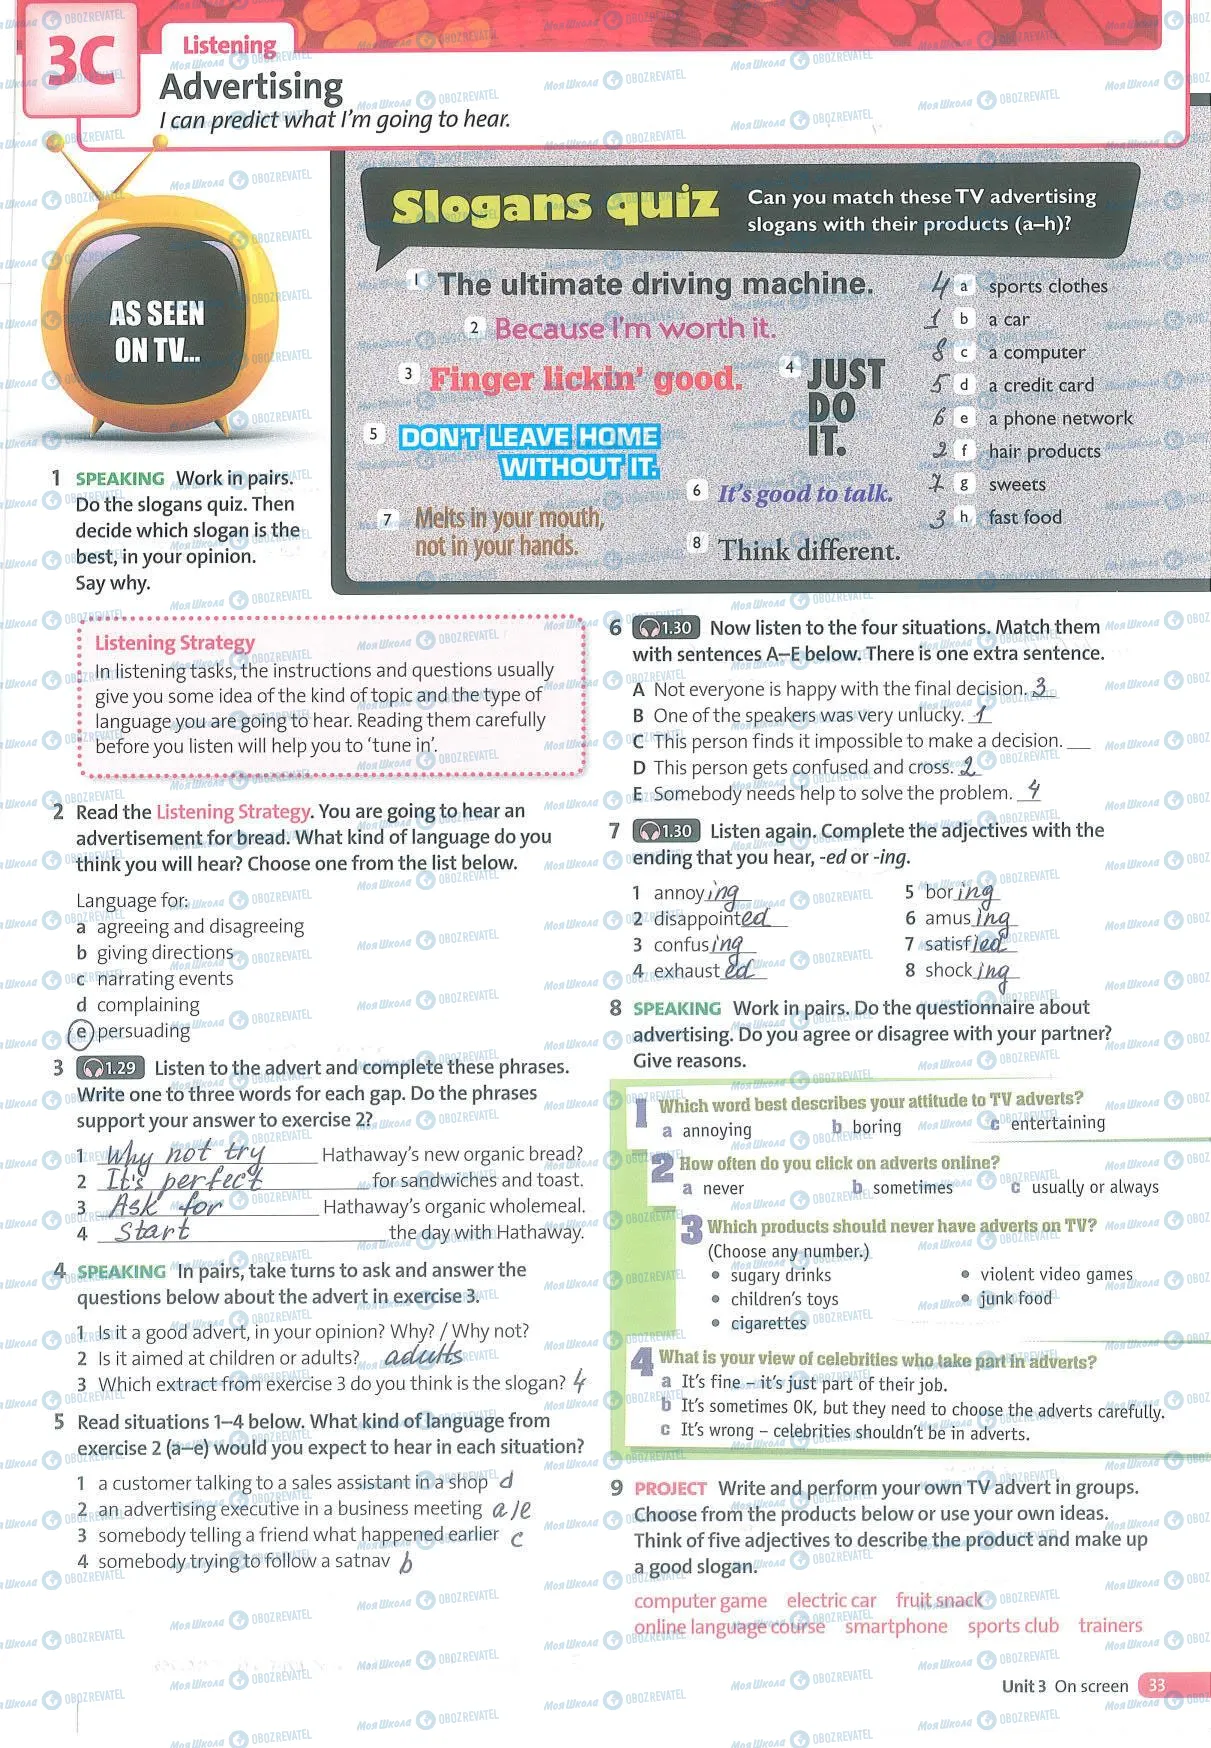 3C
Listening
Advertising
I can predict what I'm going to hear.
AS SEEN
ON TV...
Slogans quiz
Can you match these TV advertising
slogans with their products (a–h)?
1 The ultimate driving machine.
2 Because I'm worth it.
3 Finger lickin' good.
4 JUST
DO
IT.
5 DON'T LEAVE HOME
WITHOUT IT.
6 It's good to talk.
7 Melts in your mouth,
not in your hands.
8 Think different.
4 a sports clothes
1 b a car
8 c a computer
5 d a credit card
6 e a phone network
2 f hair products
7 g sweets
3 h fast food
1 SPEAKING Work in pairs.
Do the slogans quiz. Then
decide which slogan is the
best, in your opinion.
Say why.
Listening Strategy
In listening tasks, the instructions and questions usually
give you some idea of the kind of topic and the type of
language you are going to hear. Reading them carefully
before you listen will help you to 'tune in'.
2 Read the Listening Strategy. You are going to hear an
advertisement for bread. What kind of language do you
think you will hear? Choose one from the list below.
Language for:
a agreeing and disagreeing
b giving directions
c narrating events
d complaining
e persuading
3 1.29 Listen to the advert and complete these phrases.
Write one to three words for each gap. Do the phrases
support your answer to exercise 2?
1 Why not try Hathaway's new organic bread?
2 It's perfect for sandwiches and toast.
3 Ask for Hathaway's organic wholemeal.
4 Start the day with Hathaway.
4 SPEAKING In pairs, take turns to ask and answer the
questions below about the advert in exercise 3.
1 Is it a good advert, in your opinion? Why? / Why not?
2 Is it aimed at children or adults? adults
3 Which extract from exercise 3 do you think is the slogan? 4
5 Read situations 1–4 below. What kind of language from
exercise 2 (a–e) would you expect to hear in each situation?
1 a customer talking to a sales assistant in a shop d
2 an advertising executive in a business meeting a/e
3 somebody telling a friend what happened earlier c
4 somebody trying to follow a satnav b
6 1.30 Now listen to the four situations. Match them
with sentences A–E below. There is one extra sentence.
A Not everyone is happy with the final decision. 3
B One of the speakers was very unlucky. 1
C This person finds it impossible to make a decision. __
D This person gets confused and cross. 2
E Somebody needs help to solve the problem. 4
7 1.30 Listen again. Complete the adjectives with the
ending that you hear, -ed or -ing.
1 annoying
2 disappointed
3 confusing
4 exhausted
5 boring
6 amusing
7 satisfied
8 shocking
8 SPEAKING Work in pairs. Do the questionnaire about
advertising. Do you agree or disagree with your partner?
Give reasons.
1 Which word best describes your attitude to TV adverts?
a annoying b boring c entertaining
2 How often do you click on adverts online?
a never b sometimes c usually or always
3 Which products should never have adverts on TV?
(Choose any number.)
• sugary drinks • violent video games
• children's toys • junk food
• cigarettes
4 What is your view of celebrities who take part in adverts?
a It's fine – it's just part of their job.
b It's sometimes OK, but they need to choose the adverts carefully.
c It's wrong – celebrities shouldn't be in adverts.
9 PROJECT Write and perform your own TV advert in groups.
Choose from the products below or use your own ideas.
Think of five adjectives to describe the product and make up
a good slogan.
computer game electric car fruit snack
online language course smartphone sports club trainers
Unit 3 On screen 33
Моя Школа OBOZREVATEL